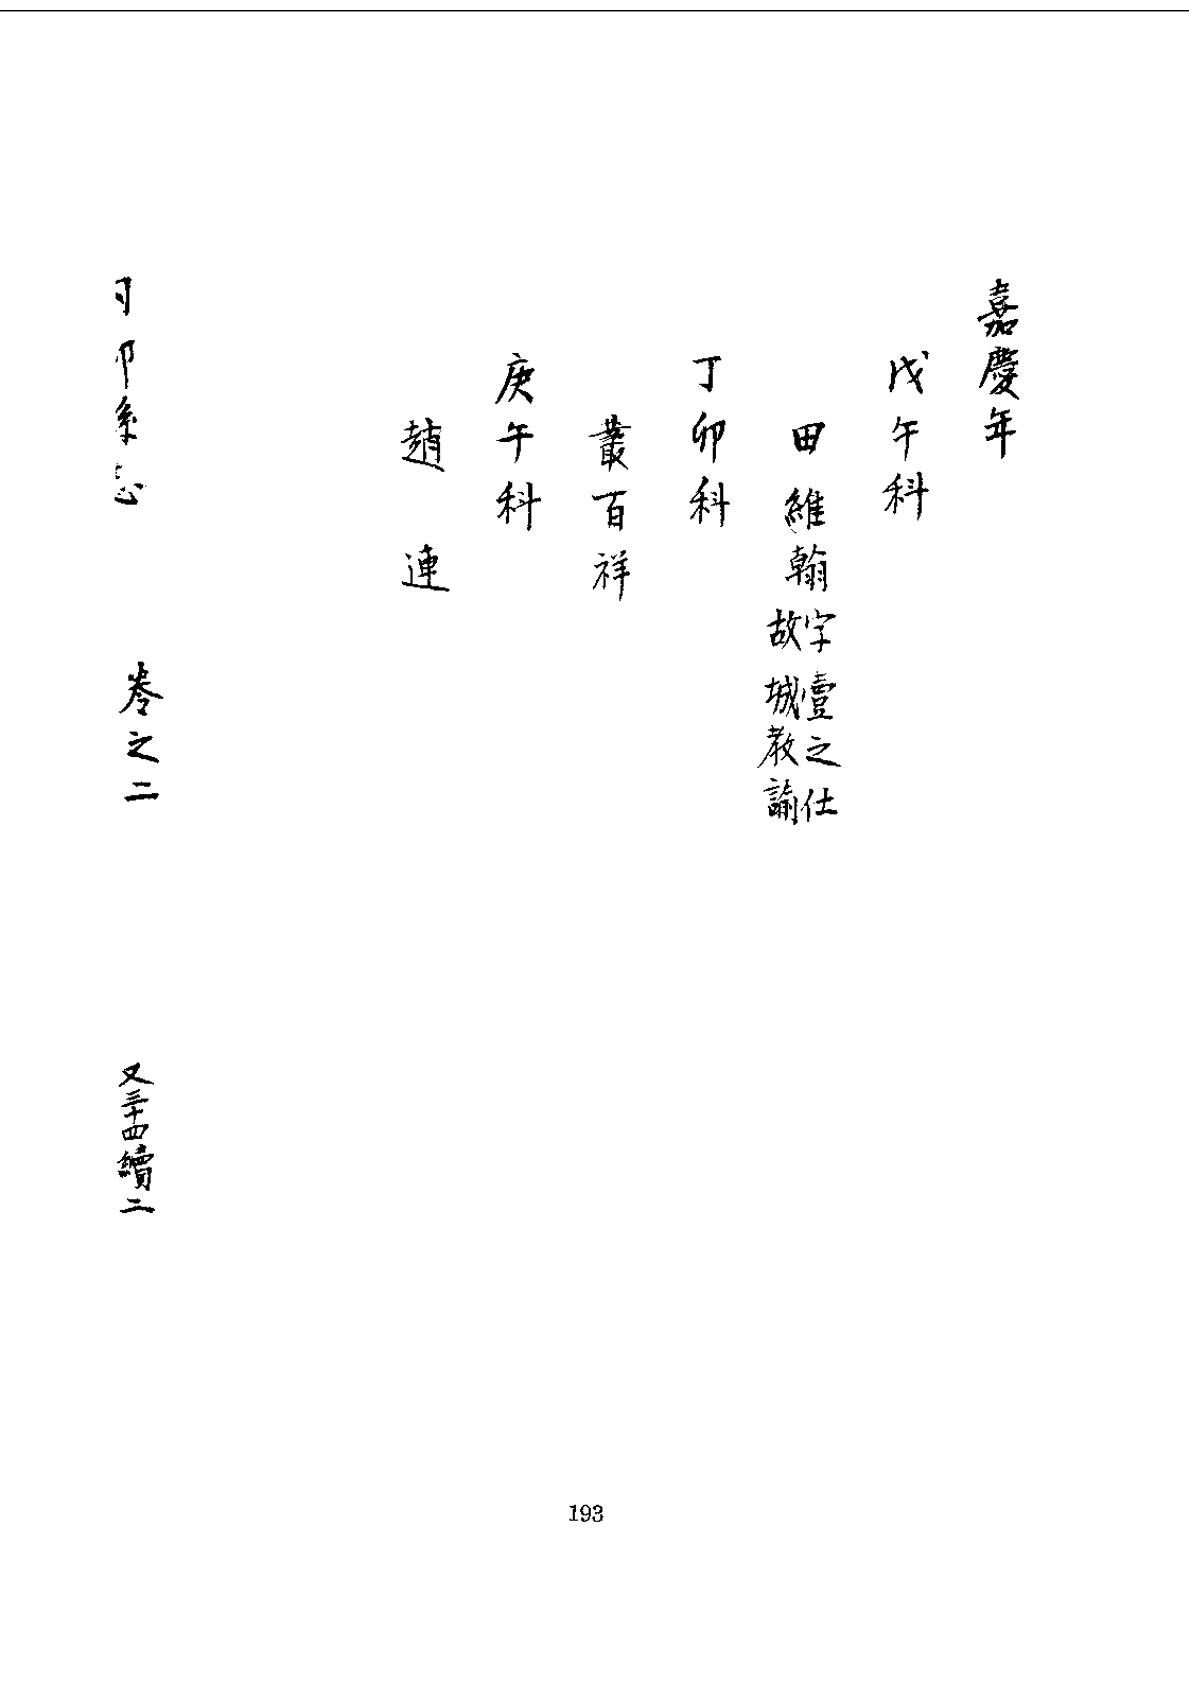 嘉慶年
戊午科
田維翰字壹之仕
故城教諭
丁卯科
叢百祥
庚午科
趙連
卷之二
又三十四續二
193